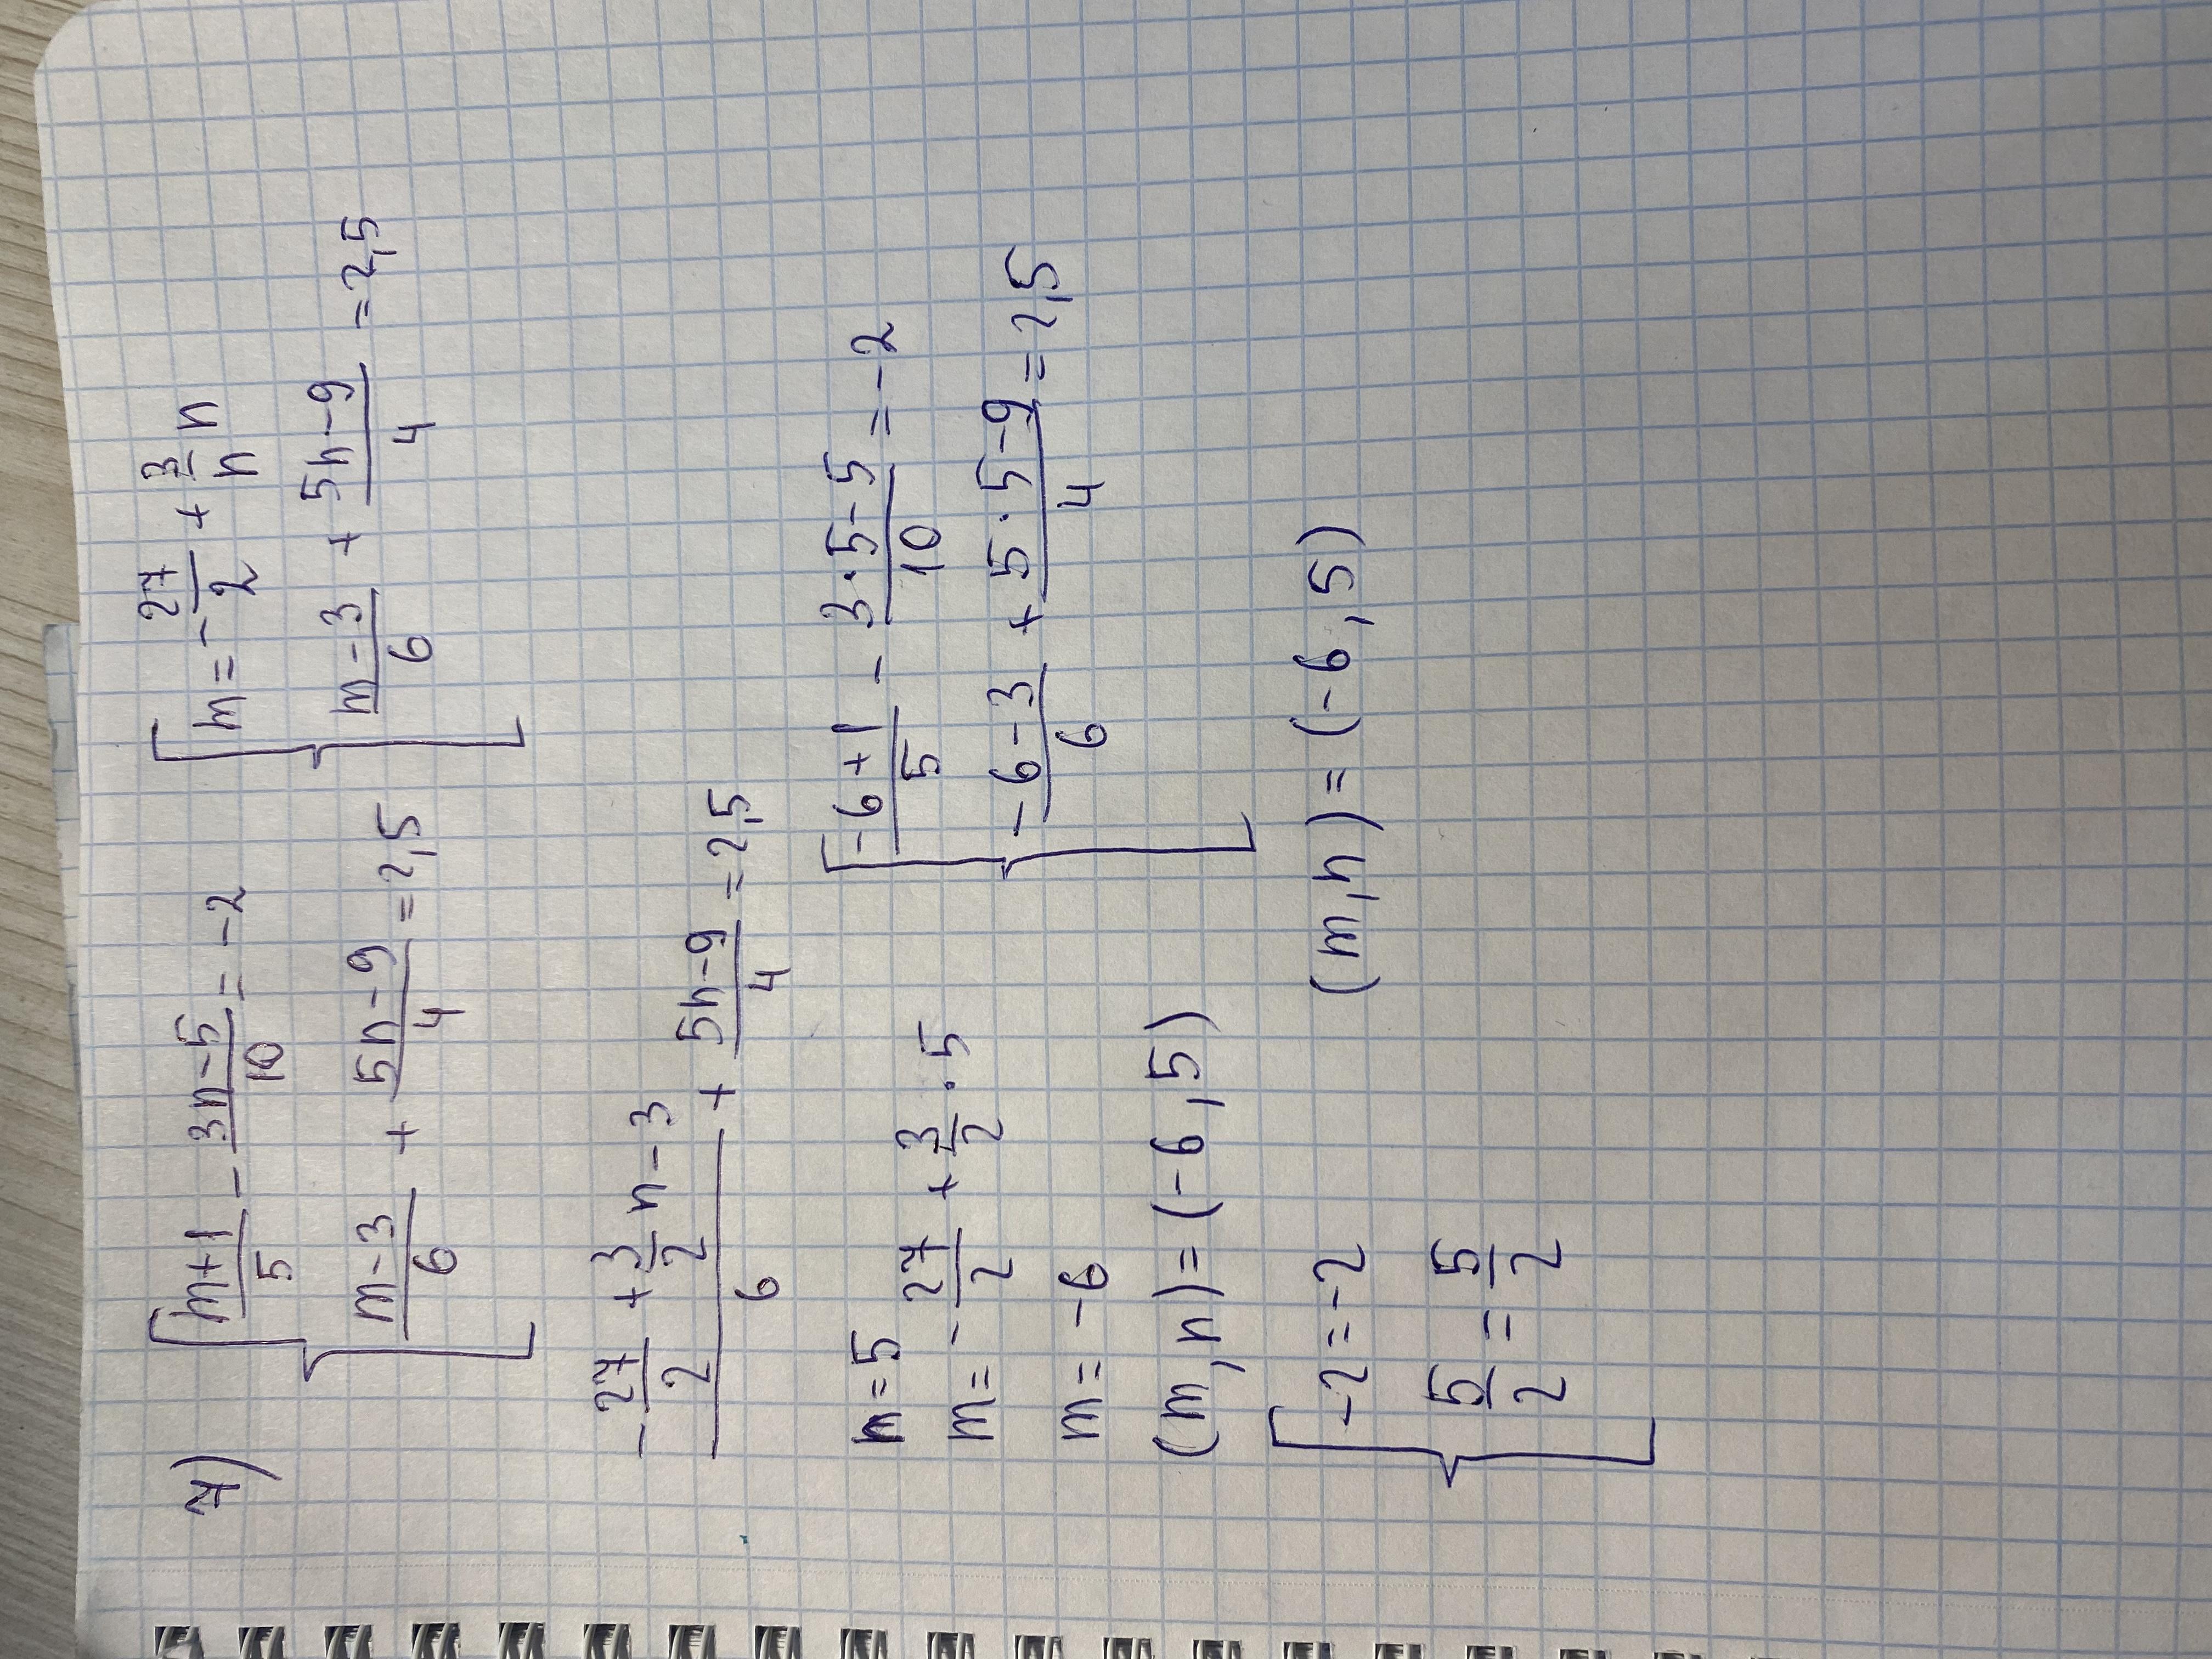 7) { (m+1)/5 - (3n-5)/10 = -2
(m-3)/6 + (5n-9)/4 = 2,5
{ m = -27/2 + 3/n n
(m-3)/6 + (5n-9)/4 = 2,5
(-27/2 + 3/2 n - 3)/6 + (5n-9)/4 = 2,5
n = 5
m = -27/2 + 3/2 · 5
m = -6
(m,n) = (-6,5)
{ (-6+1)/5 - (3·5-5)/10 = -2
(-6-3)/6 + (5·5-9)/4 = 2,5
{ -2 = -2
5/2 = 5/2
(m,n) = (-6,5)